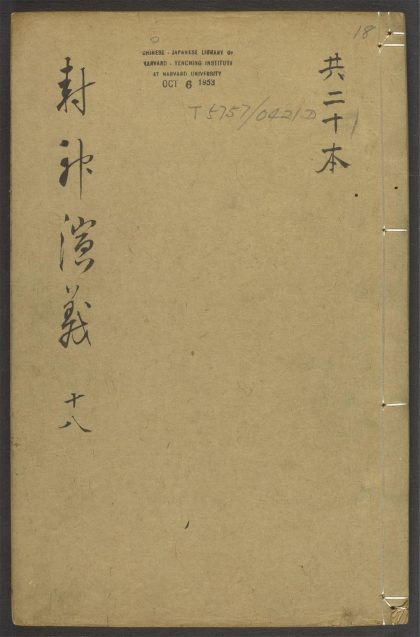 18
共二十本
CHINESE - JAPANESE LIBRARY OF
HARVARD - YENCHING INSTITUTE
AT HARVARD UNIVERSITY
OCT 6 1953
T 5757/0421D
封神演義 十八